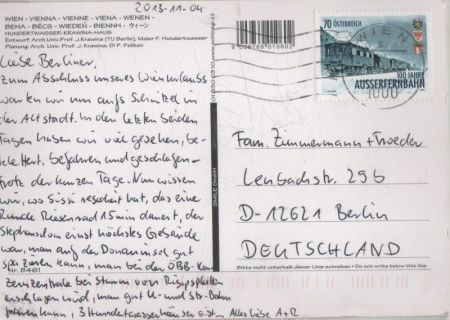 2013-11-04
WIEN - VIENNA - VIENNE - VIENA - WENEN -
BEHA - BÉCS - WIEDEŃ - BIENNH - ウィーン
HUNDERTWASSER-KRAWINA-HAUS
Entwurf: Arch.Univ.Prof. J.Krawina (TU Berlin), Maler F. Hundertwasser
Planung: Arch. Univ. Prof. J. Krawina, DI P. Pelikan
Liebe Berliner,
zum Abschluss unseres Wienurlaubs
warten wir nun aufs Schnitzel in
der Altstadt. In den letzten beiden
Tagen haben wir viel gesehen, be-
fahren und
trotz der kurzen Tage. Nun wissen
wir, wo Sissi residiert hat, das eine
Runde Riesenrad 15 min dauert, der
Stephansdom einst höchstes Gebäude
war, man auf der Donauinsel gut
spazieren kann, man bei der ÖBB-
zentrale bei Sturm von
erschlagen wird, man gut U- und Str-Bahn
fahren kann, 3 Hundertwasserhäuser gibt. Alles Liebe A+R
Nr. B-461
SMILE GmbH
9006769010602
70 ÖSTERREICH
100 JAHRE
AUSSERFERNBAHN
WIEN
1000
Fam. Zimmermann + Troeder
Lenbachstr. 29b
D-12621 Berlin
DEUTSCHLAND
Bitte nicht unterhalb dieser Linie schreiben - Do not write below this line